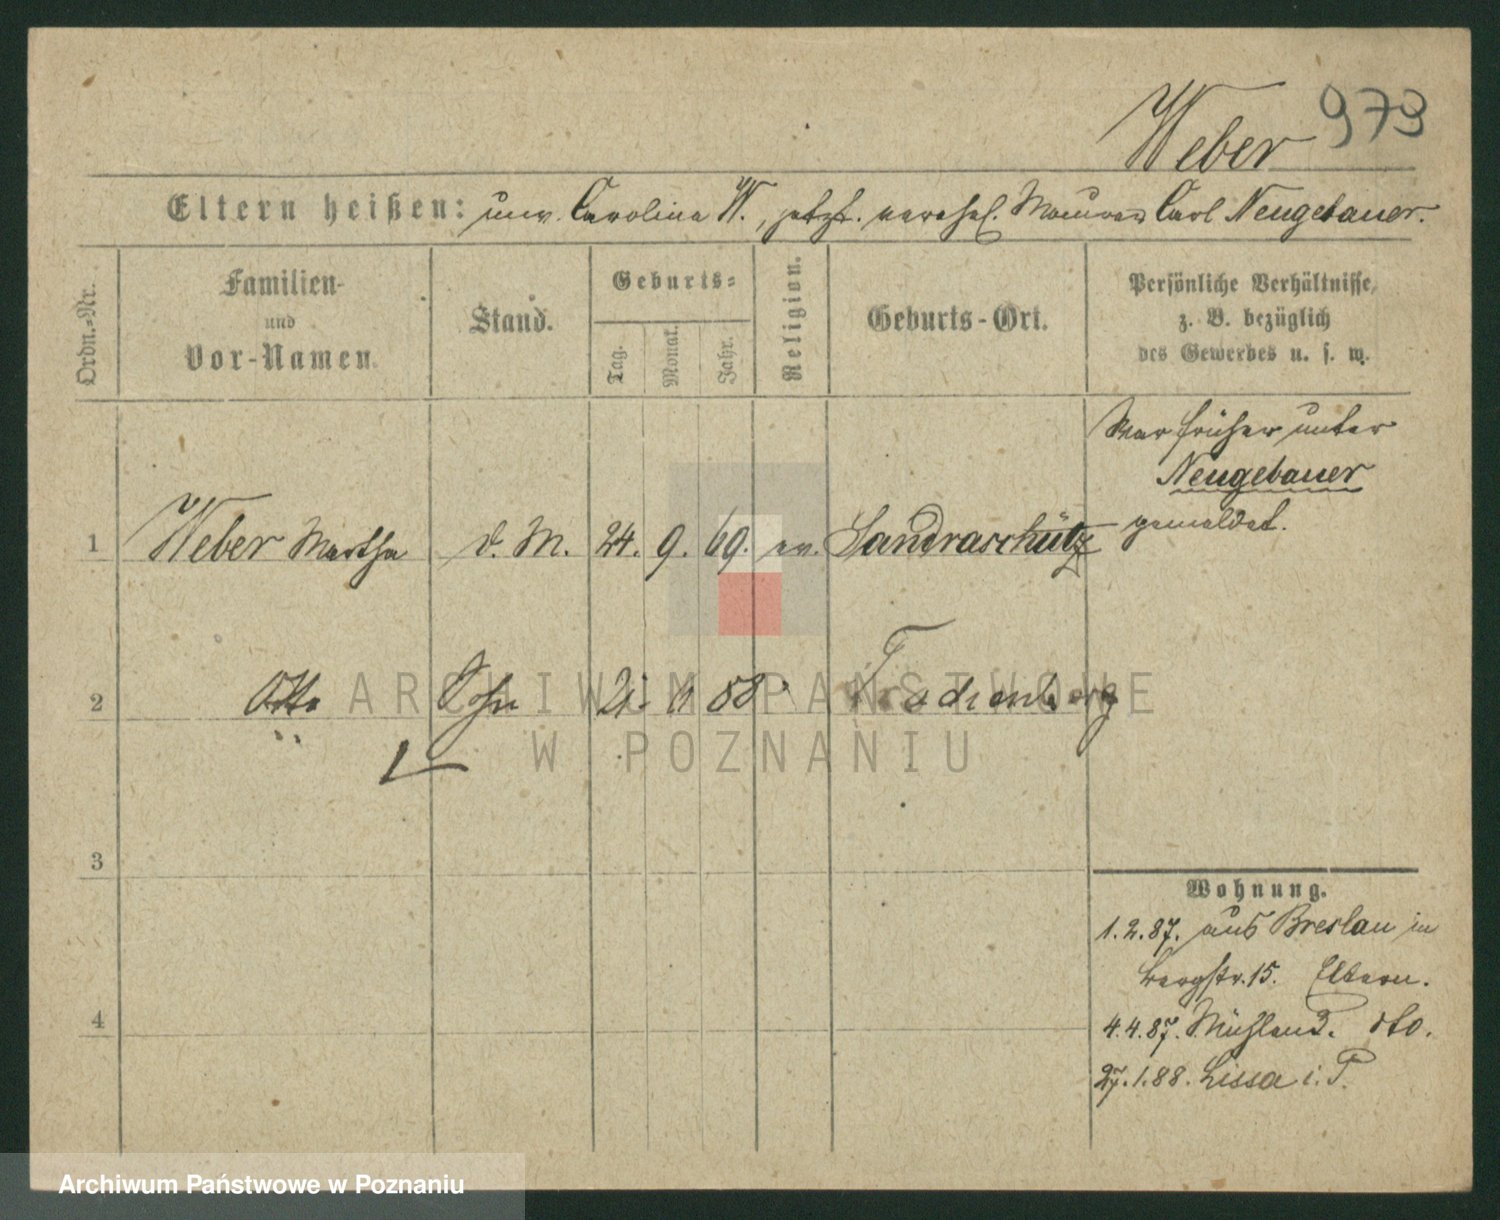 Weber 973
Eltern heißen: unv. Carolina W., jetzt. verehel. Maurer Carl Neugebauer.
Ordn.-Nr.
Familien-
und
Vor-Namen.
Stand.
Geburts-
Tag.
Monat.
Jahr.
Religion.
Geburts-Ort.
Persönliche Verhältnisse,
z. B. bezüglich
des Gewerbes u. s. w.
War früher unter
Neugebauer
gemeldet.
1 Weber Martha d. M. 24. 9. 69. ev. Sandraschütz
2 Otto Sohn 88 Trachenberg
ARCHIWUM PAŃSTWOWE
W POZNANIU
3
4
Wohnung.
1.2.87. aus Breslau in
Bergstr. 15. Eltern.
4.4.87. Mühlend. dto.
27.1.88. Lissa i. P.
Archiwum Państwowe w Poznaniu